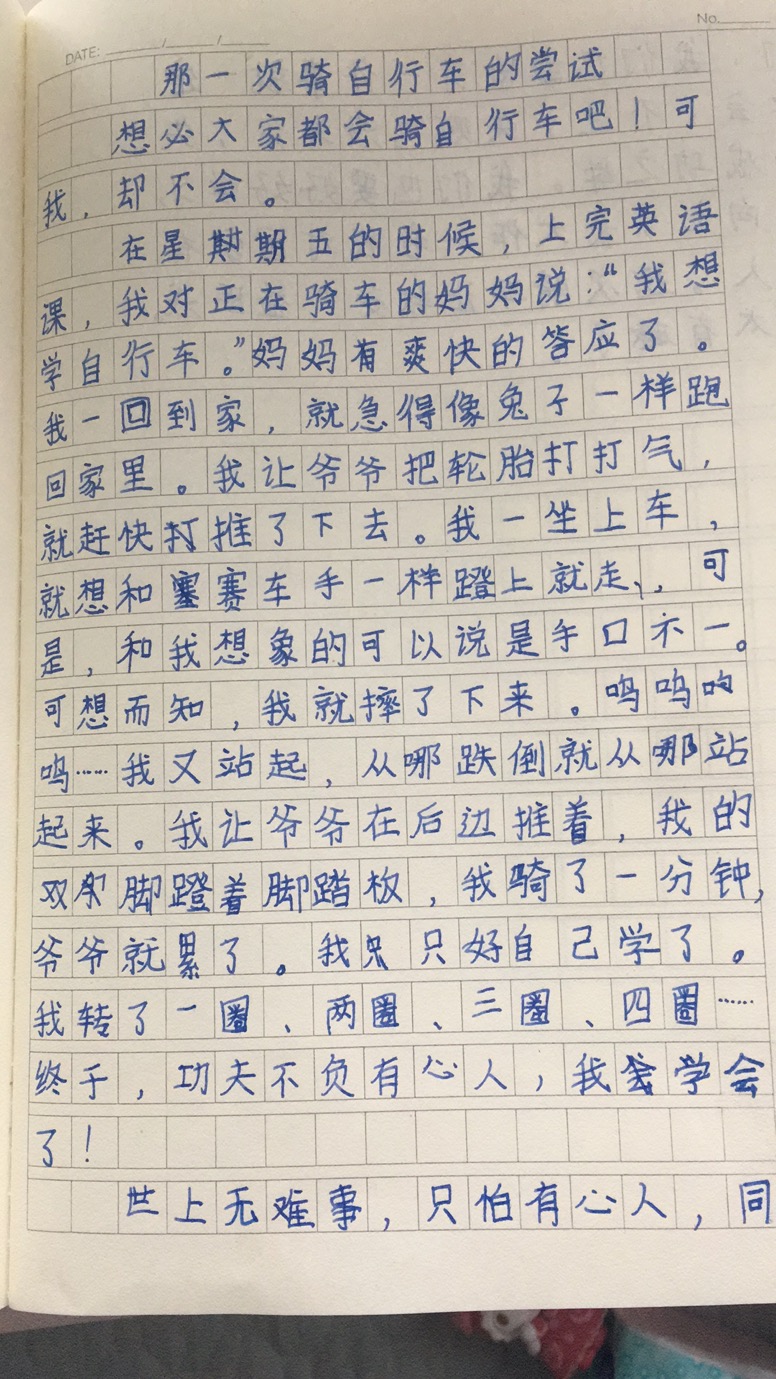 No.
DATE: / /
那一次骑自行车的尝试
想必大家都会骑自行车吧！可
我，却不会。
在星期五的时候，上完英语
课，我对正在骑车的妈妈说：“我想
学自行车。”妈妈有爽快的答应了。
我一回到家，就急得像兔子一样跑
回家里。我让爷爷把轮胎打打气，
就赶快打推了下去。我一坐上车，
就想和赛车手一样蹬上就走，可
是，和我想象的可以说是手口不一。
可想而知，我就摔了下来。呜呜呜
呜……我又站起，从哪跌倒就从哪站
起来。我让爷爷在后边推着，我的
双脚蹬着脚踏板，我骑了一分钟，
爷爷就累了。我只好自己学了。
我转了一圈、两圈、三圈、四圈……
终于，功夫不负有心人，我学会
了！
世上无难事，只怕有心人，同